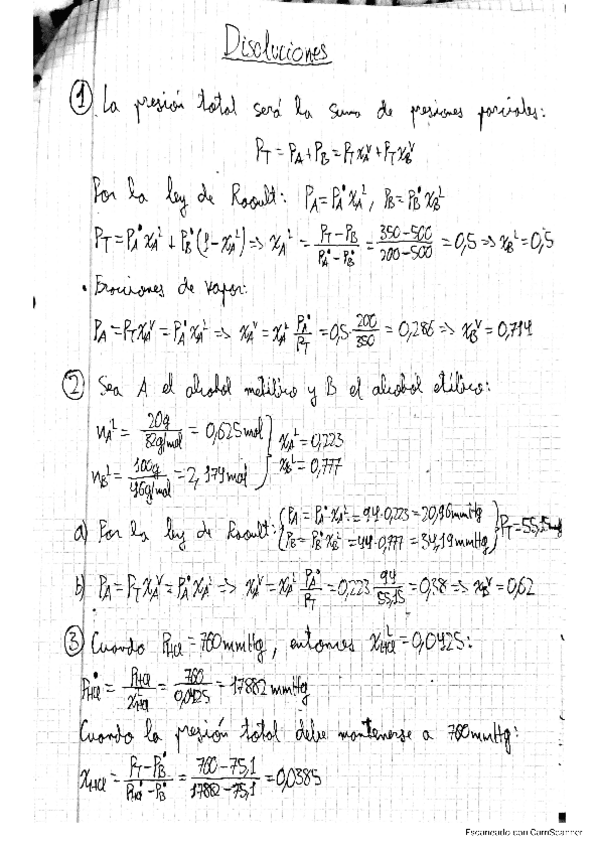 Disoluciones
① La presión total será la suma de presiones parciales:
P_T = P_A + P_B = P_T x_A^V + P_T x_B^V
Por la ley de Raoult: P_A = P_A° x_A^L, P_B = P_B° x_B^L
P_T = P_A° x_A^L + P_B° (1 - x_A^L) => x_A^L = (P_T - P_B)/(P_A° - P_B°) = (350 - 500)/(200 - 500) = 0,5 => x_B^L = 0,5
• Fracciones de vapor:
P_A = P_T x_A^V = P_A° x_A^L => x_A^V = x_A^L P_A°/P_T = 0,5 · 200/350 = 0,286 => x_B^V = 0,714
② Sea A el alcohol metílico y B el alcohol etílico:
n_A^L = 20g/(32g/mol) = 0,625 mol } x_A^L = 0,223
n_B^L = 100g/(46g/mol) = 2,174 mol } x_B^L = 0,777
a) Por la ley de Raoult: { P_A = P_A° · x_A^L = 94 · 0,223 = 20,96 mmHg } P_T = 55,15 mmHg
{ P_B = P_B° x_B^L = 44 · 0,777 = 34,19 mmHg }
b) P_A = P_T x_A^V = P_A° x_A^L => x_A^V = x_A^L P_A°/P_T = 0,223 94/55,15 = 0,38 => x_B^V = 0,62
③ Cuando P_HCl = 760 mmHg, entonces x_HCl^L = 0,0425:
P_HCl° = P_HCl/x_HCl^L = 760/0,0425 = 17882 mmHg
Cuando la presión total debe mantenerse a 760 mmHg:
x_HCl = (P_T - P_B°)/(P_HCl° - P_B°) = (760 - 75,1)/(17882 - 75,1) = 0,0385
Escaneado con CamScanner